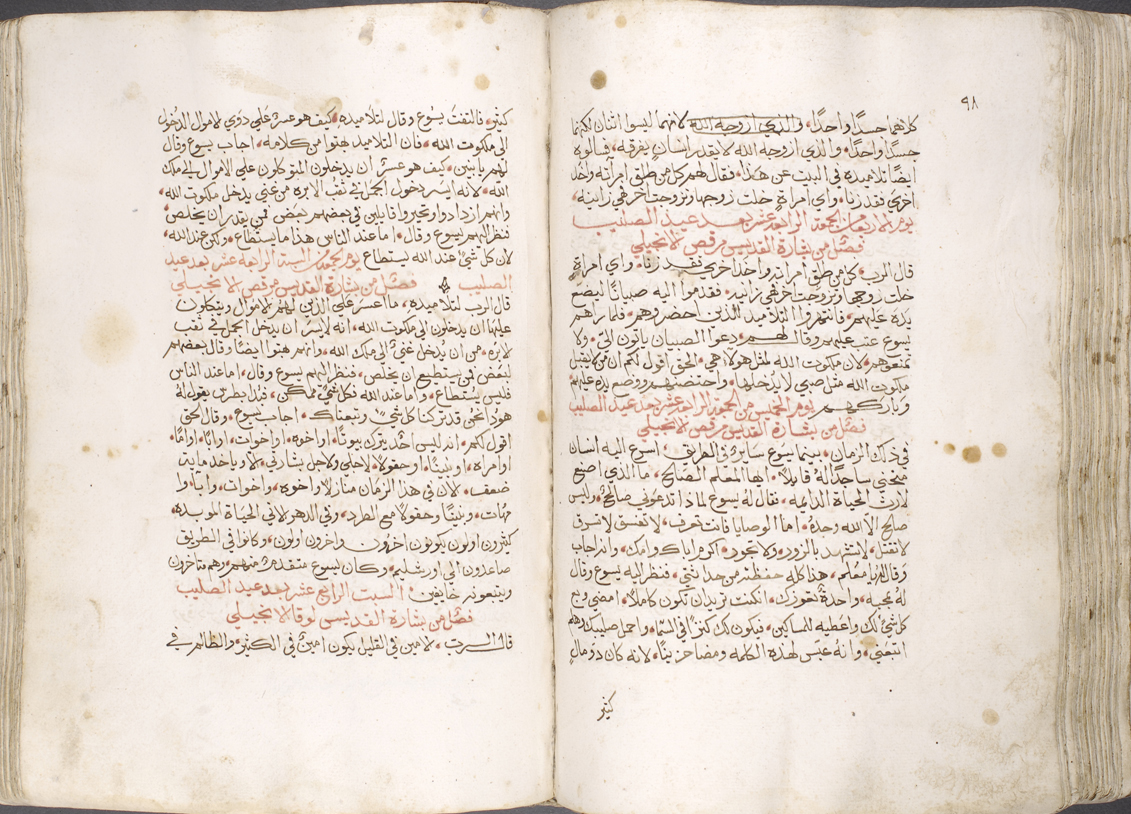 ٩٨
كلاهما جسدًا واحدًا، والذي ازوجه الله لانهما ليسوا اثنان لكنهما
جسدًا واحدًا، والذي ازوجه الله لا يقدر انسان يفرقه، فسالوه
ايضًا تلاميذه في البيت عن هذا، فقال لهم كل من طلق امرأته واخذ
اخرى فقد زنا، واي امراةٍ خلت زوجها وتزوجت اخر فهي زانيه،
يوم الاربعا من الجمعة الرابعة عشر بعد عيد الصليب
فصل من بشارة القديس مرقص الانجيلي
قال الرب، كل من طلق امراته واخذ اخرى فقد زنا، واي امراةٍ
خلت زوجها وتزوجت اخر فهي زانيه، فقدموا اليه صبيانًا ليضع
يده عليهم، فانتهروا التلاميذ الذين حضروهم، فلما راهم
يسوع عتب عليهم وقال لهم، دعوا الصبيان ياتون اليّ، ولا
تمنعوهم، لان ملكوت الله لمثل هولاء هي، الحق اقول لكم ان من لا يقبل
ملكوت الله مثل صبي لا يدخلها، واحتضنهم ووضع يده عليهم
وباركهم، يوم الخميس من الجمعة الرابعة عشر بعد عيد الصليب
فصل من بشارة القديس مرقص الانجيلي
في ذلك الزمان، بينما يسوع ساير في الطريق، اسرع اليه انسان
منحني ساجدًا له قايلًا، ايها المعلم الصالح، ما الذي اصنع
لارث الحياة الدايمه، فقال له يسوع لماذا تدعوني صالحٌ، وليس
صالح الا الله وحده، اما الوصايا فانت تعرف، لا تفسق لا تسرق
لا تقتل، لا تشهد بالزور، ولا تجور، اكرم اباك وامك، وانه اجاب
وقال له يا معلم، هذا كله حفظته من حداثتي، فنظر اليه يسوع وقال
له بمحبه، واحدةٌ تعوزك، ان كنت تريد ان تكون كاملًا، امضي وبع
كل شيءٍ لك واعطيه للمساكين، فيكون لك كنزًا في السما، واحمل صليبك وهلم
اتبعني، وانه عبّس لهذه الكلمه ومضا حزينًا، لانه كان ذو مالٍ
كثير
كثير، فالتفت يسوع وقال لتلاميذه، كيف هو عسرٌ على ذوي الاموال الدخول
الى ملكوت الله، فان التلاميذ بهتوا من كلامه، اجاب يسوع وقال
لهم يا بنين، كيف هو عسرٌ ان يدخلون المتوكلون على الاموال الى ملك
الله، لانه ايسر دخول الجمل في ثقب الابره من غني يدخل ملكوت الله،
وانهم ازدادوا وتحيروا قايلين في بعضهم بعض فمن يقدر ان يخلص،
فنظر اليهم يسوع وقال، اما عند الناس هذا ما يستطاع، ولكن عند الله،
لان كل شيٍ عند الله يستطاع يوم الجمعة من السبة الرابعة عشر بعد عيد
الصليب فصل من بشارة القديس مرقص الانجيلي
قال الرب لتلاميذه، ما اعسر على الذين لهم الاموال ويتكلون
عليها ان يدخلون الى ملكوت الله، انه لايسر ان يدخل الجمل في ثقب
الابره، من ان يدخل غنيٌ الى ملك الله، وانهم بهتوا ايضًا وقال بعضهم
لبعض فمن يستطيع ان يخلص، فنظر اليهم يسوع وقال، اما عند الناس
فليس يستطاع، واما عند الله فكل شيٍ ممكن، فبدا بطرس يقول له
هوذا نحن قد تركنا كل شيٍ وتبعناك، اجاب يسوع، وقال الحق
اقول لكم، انه ليس احد يترك بيوتًا، او اخوه، او اخوات، او ابًا، او امًا،
او امراه، او بنينًا، او حقولًا، لاجلي ولاجل بشارتي، الا وياخذ ماية
ضعف، الان في هذا الزمان منازلًا واخوه، واخوات، وابا، وا
مهات، وبنينًا وحقولًا مع الطرد، وفي الدهر الاتي الحياة الموبده،
كثيرون اولون يكونون اخرون واخرون اولون، وكانوا في الطريق
صاعدون الى اورشليم، وكان يسوع متقدمٌ منهم، وهم متاخرون
ويتبعونه خايفين، السبت الرابع عشر بعد عيد الصليب
فصل من بشارة القديس لوقا الانجيلي
قال الرب، الامين في القليل يكون امينٌ في الكثير، والظالم في